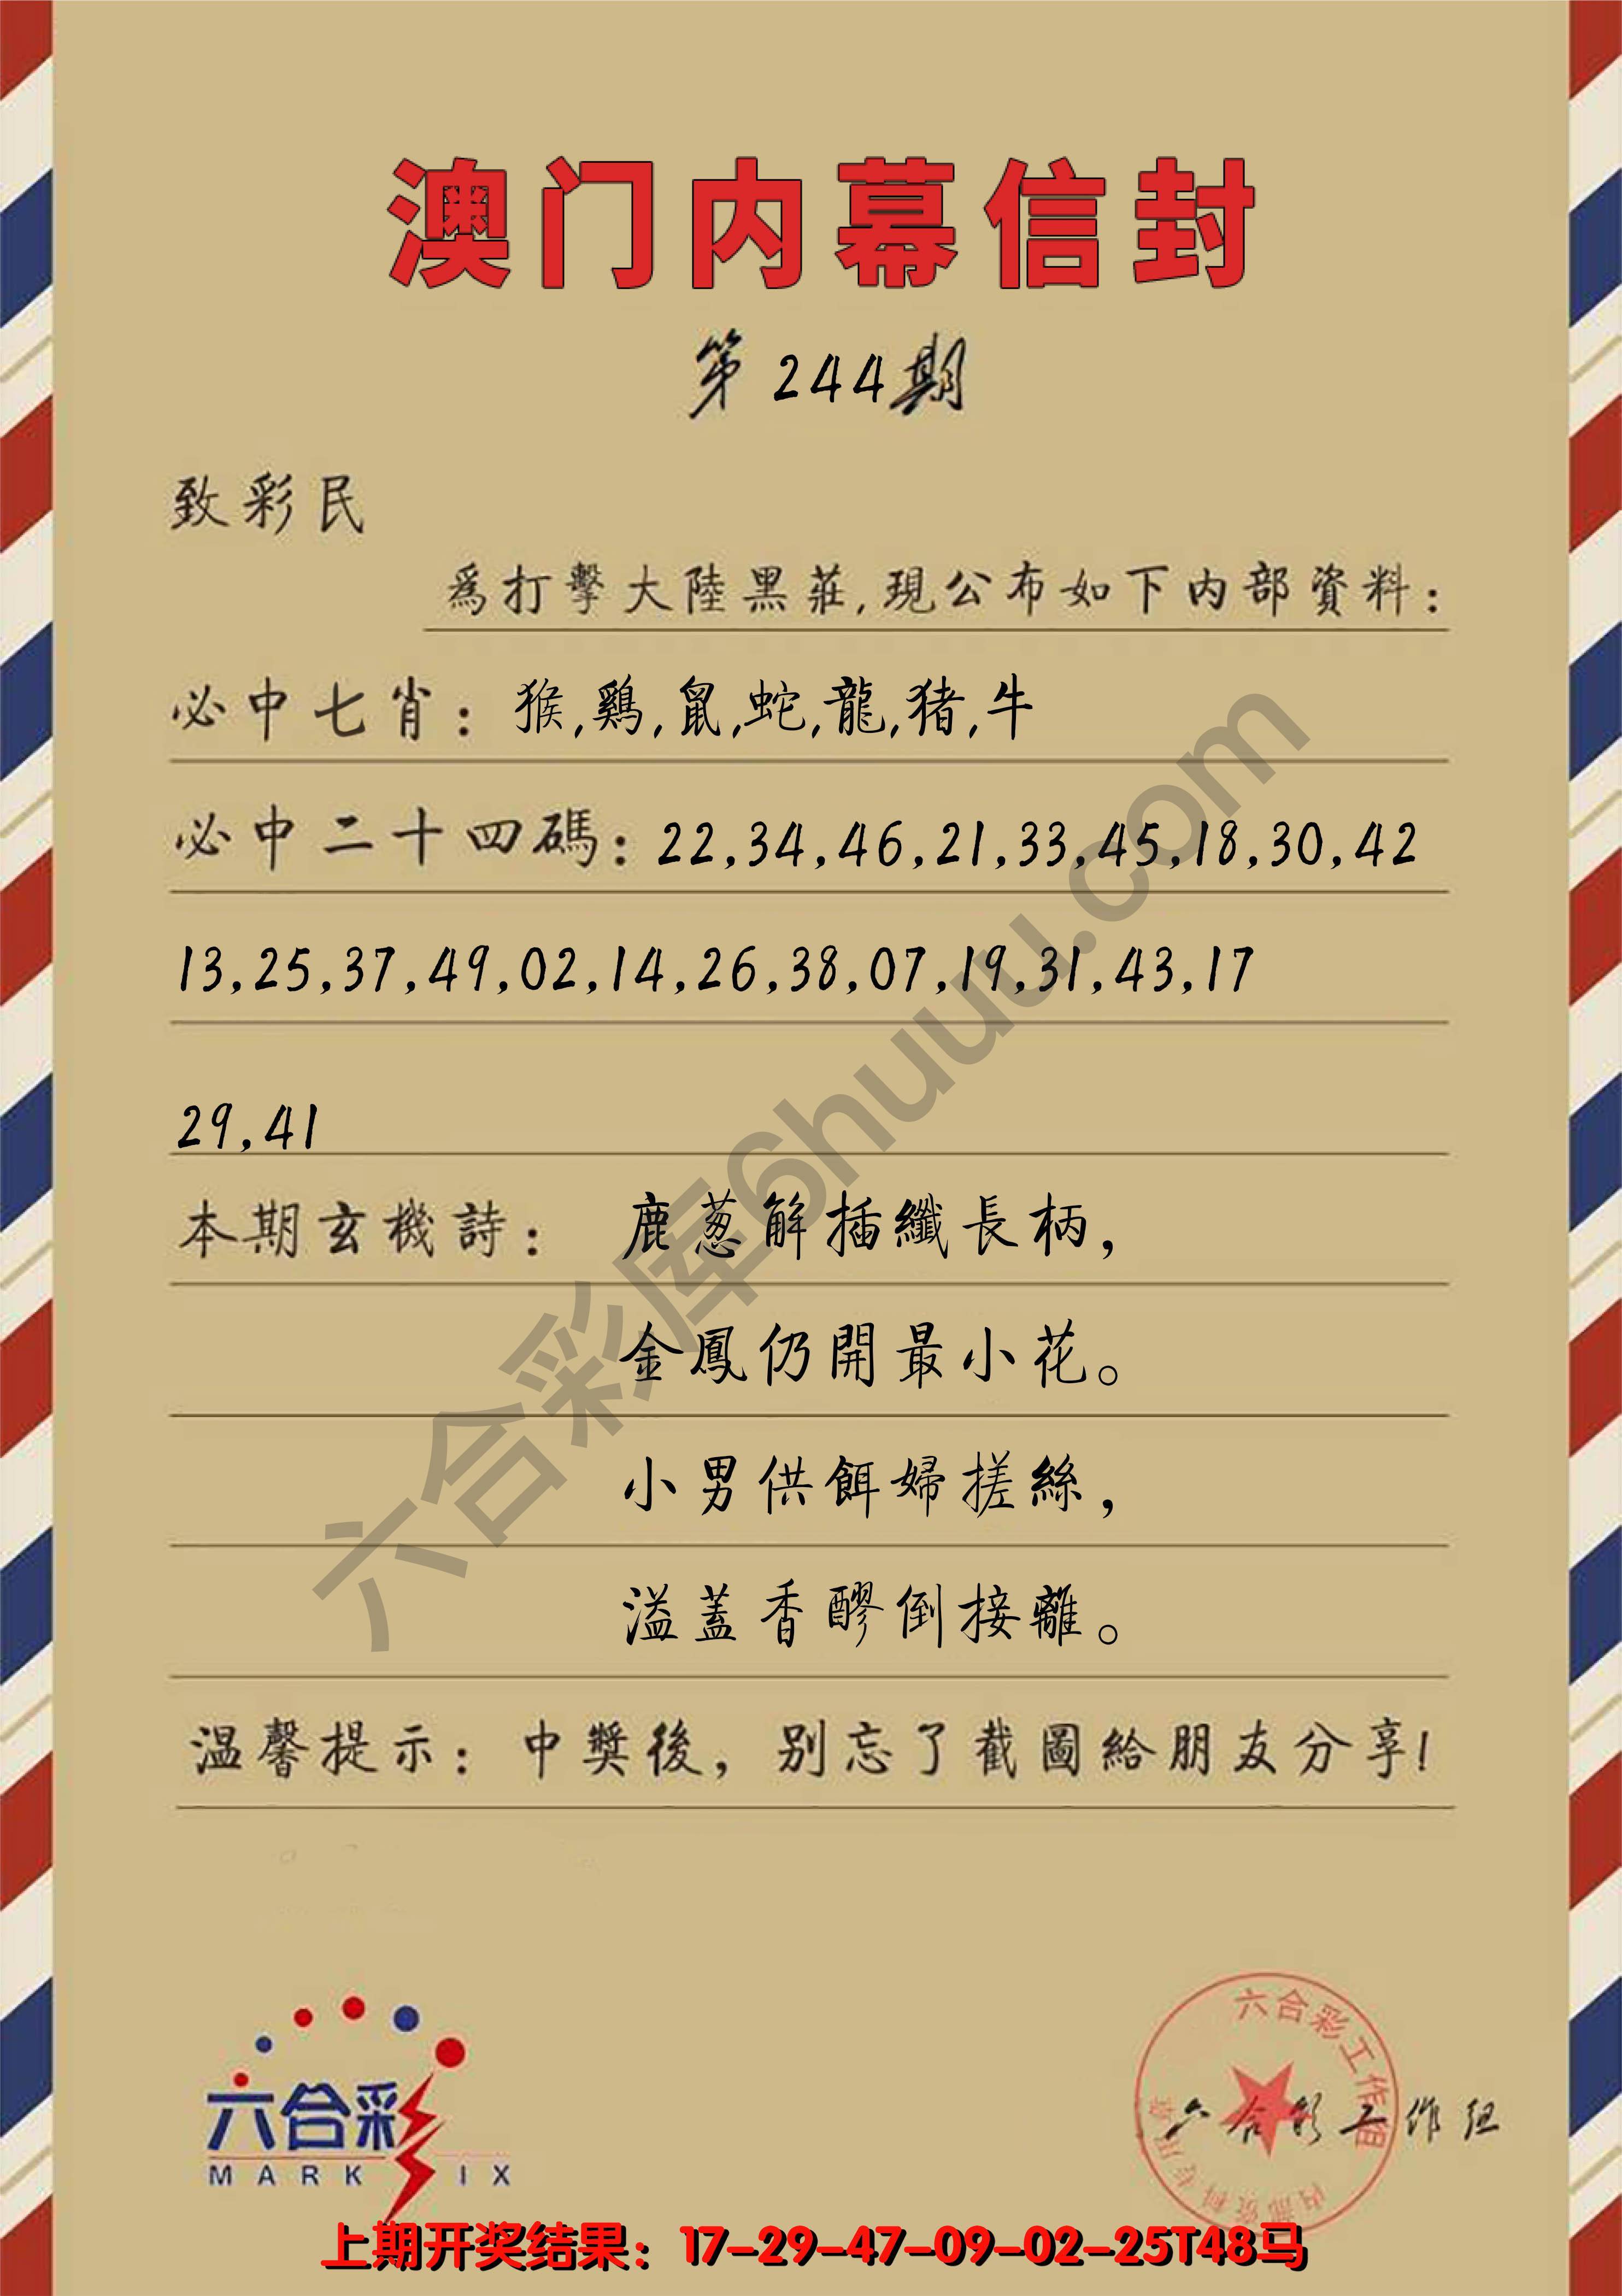 澳门内幕信封
第244期
致彩民
爲打擊大陸黑莊,現公布如下内部資料:
必中七肖: 猴,鷄,鼠,蛇,龍,猪,牛
必中二十四碼: 22,34,46,21,33,45,18,30,42
13,25,37,49,02,14,26,38,07,19,31,43,17
29,41
本期玄機詩: 鹿葱解插纖長柄,
金鳳仍開最小花。
小男供餌婦搓絲,
溢蓋香醪倒接離。
温馨提示: 中獎後, 别忘了截圖給朋友分享!
六合彩库6huuu.com
六合彩
MARK IX
六合彩工作组
内部资料专用章
六合彩工作组
上期开奖结果: 17-29-47-09-02-25T48马